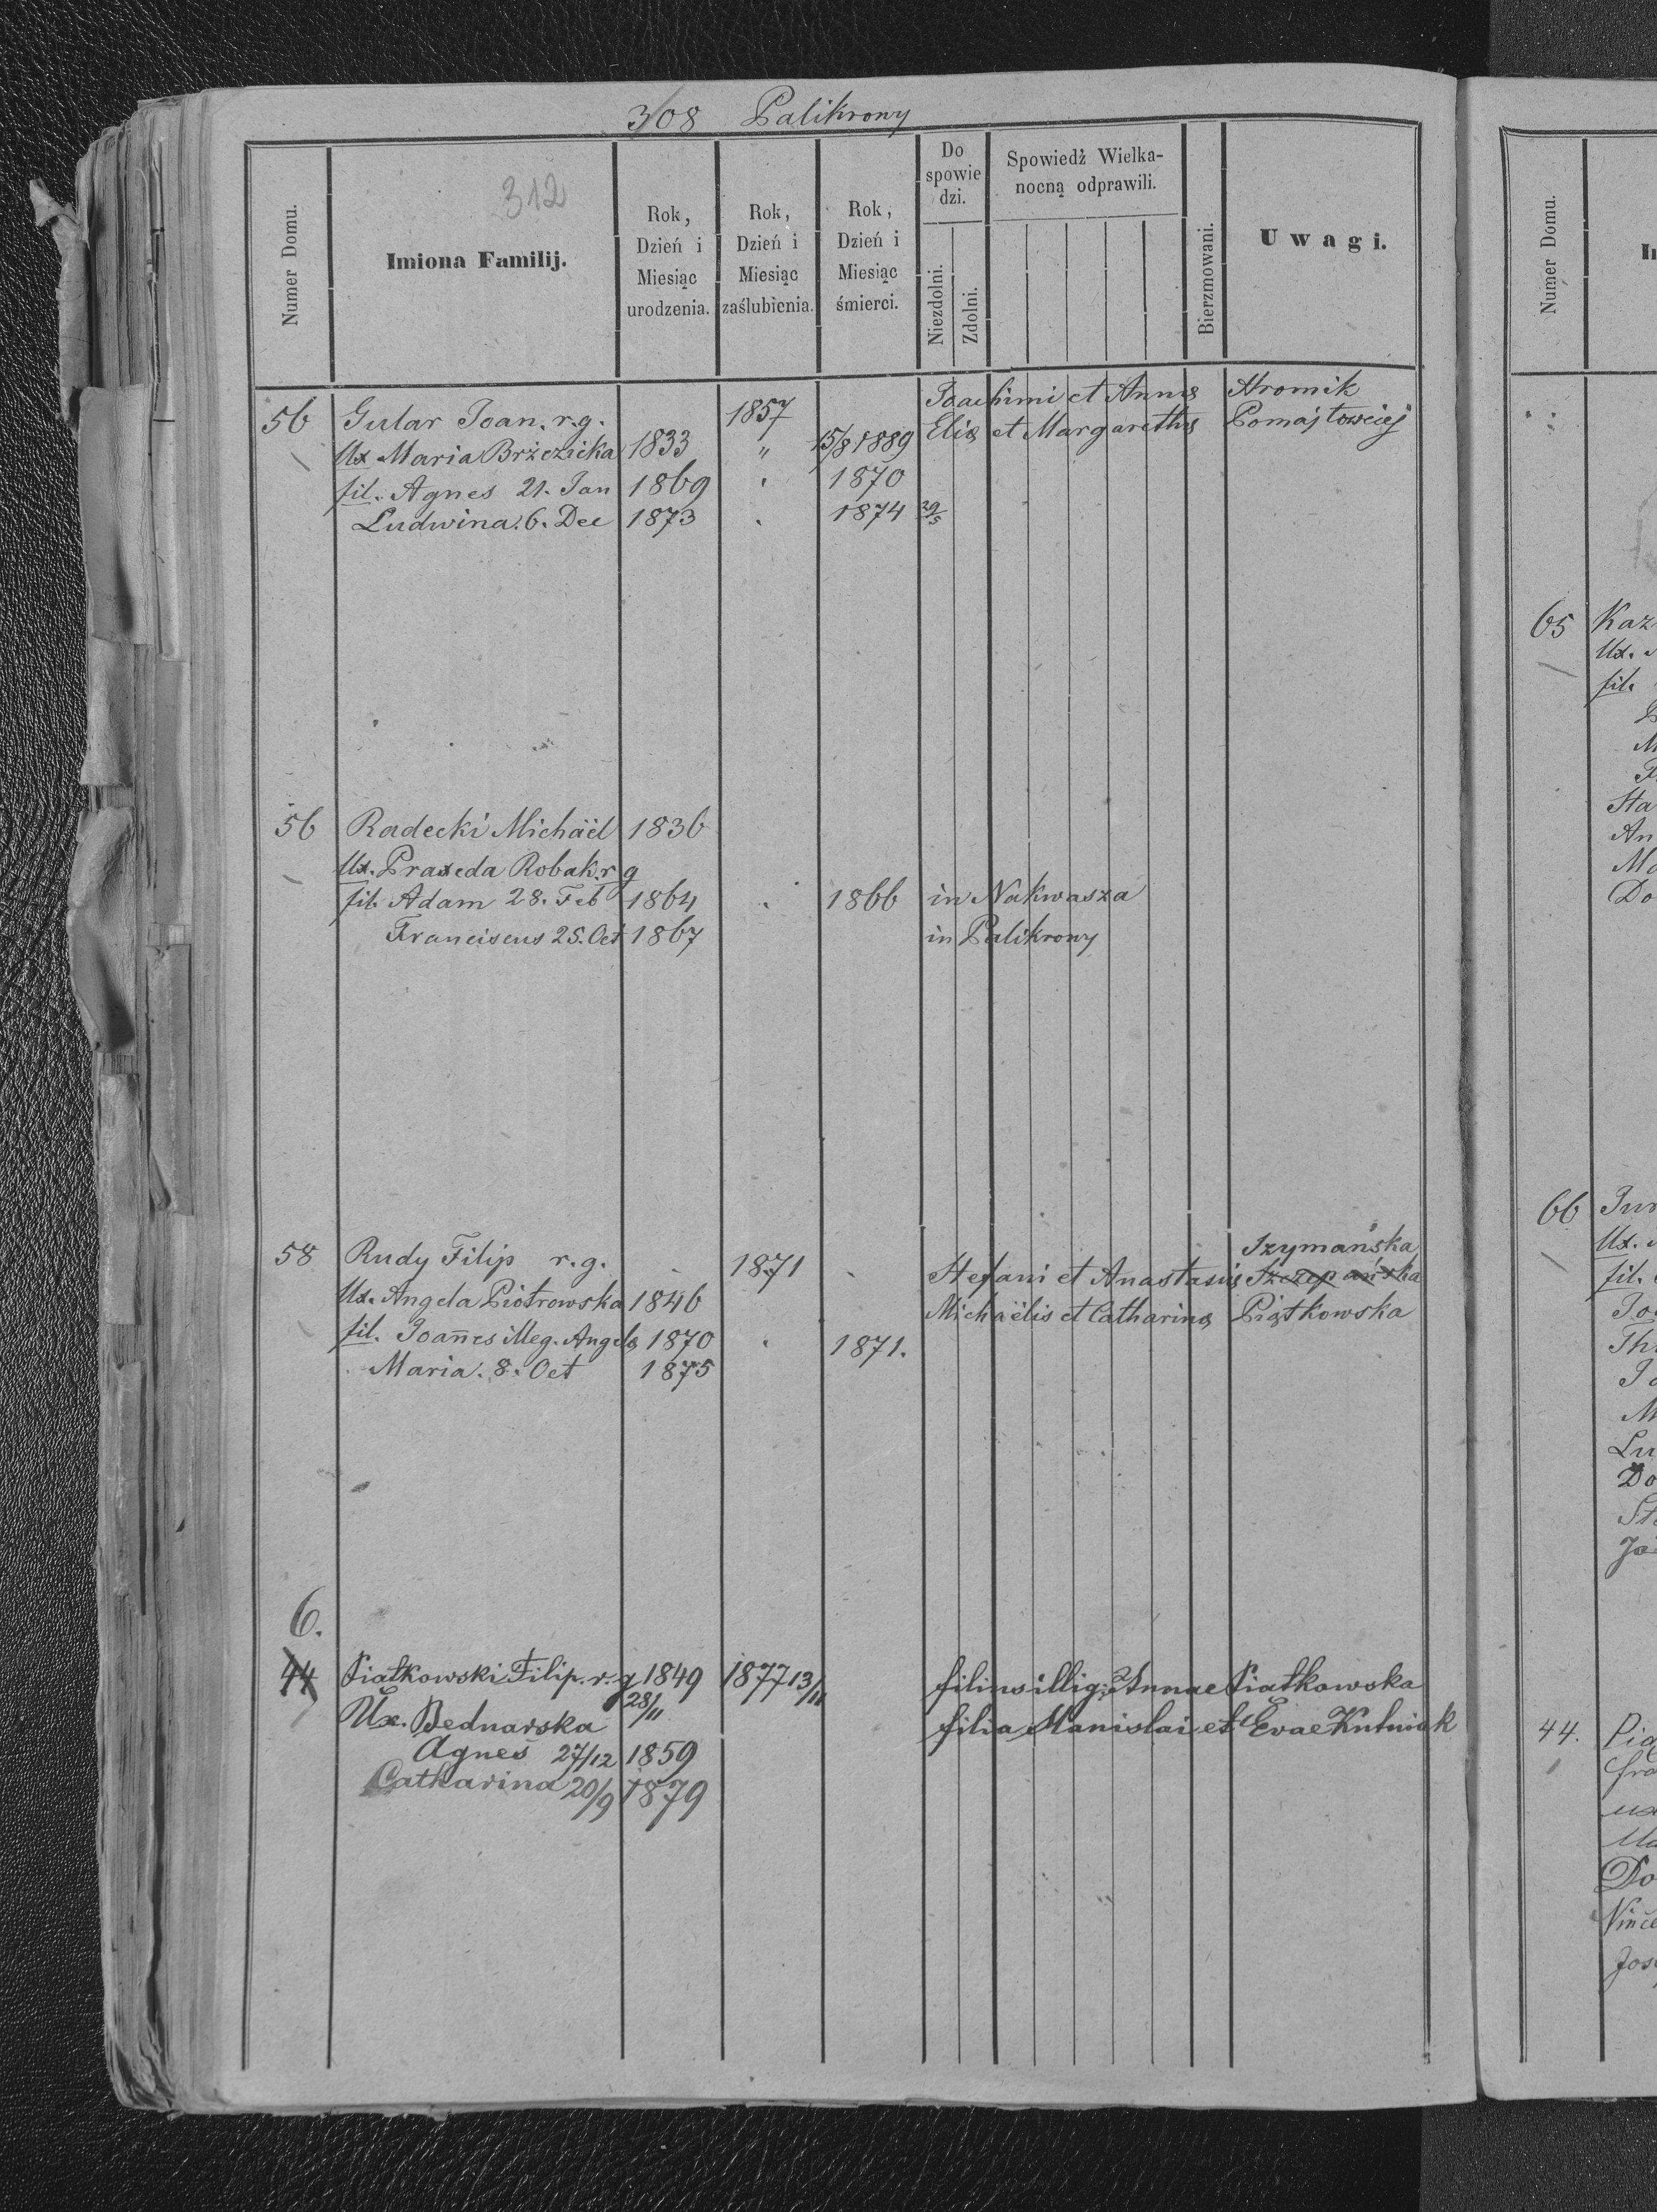 308 Palikrowy
312
Numer Domu.
Imiona Familij.
Rok, Dzień i Miesiąc urodzenia.
Rok, Dzień i Miesiąc zaślubienia.
Rok, Dzień i Miesiąc śmierci.
Do spowie dzi.
Niezdolni.
Zdolni.
Spowiedź Wielka-
nocną odprawili.
Bierzmowani.
Uwagi.
56 Gular Joan. r.g. 1857 Joachimi et Annæ Hromik
Ux Maria Brzezicka 1833 " 15/8 1889 Eliæ et Margarethæ
fil. Agnes 21. Jan 1869 1870
Ludwina. 6. Dec 1873 1874 29/5
56 Radecki Michaël 1836
Ux. Praxeda Robak. r g
fil. Adam 28. Feb 1864 1866 in Nakwasza
Franciscus 25. Oct 1867 in Palikrowy
Szymańska
58 Rudy Filip r.g. 1871 Stefani et Anastasiæ Szczepańska
Ux. Angela Piotrowska 1846 Michaëlis et Catharinæ Piątkowska
fil. Joañes illeg. Angelæ 1870 1871.
Maria. 8. Oct 1875
6.
44 Piatkowski Filip. r. g 1849 1877 13/11 filius illig: Annae Piatkowska
28/11
Ux. Bednarska filia Stanislai et Evae Kutniak
Agnes 27/12 1859
Catharina 20/9 1879
Numer Domu.
65 Kaz
Ux.
fil.
Sta
An
Ma
Do
66
Ux.
fil.
Lu
Do
44. Pia
ux
Do
Vince
Jos